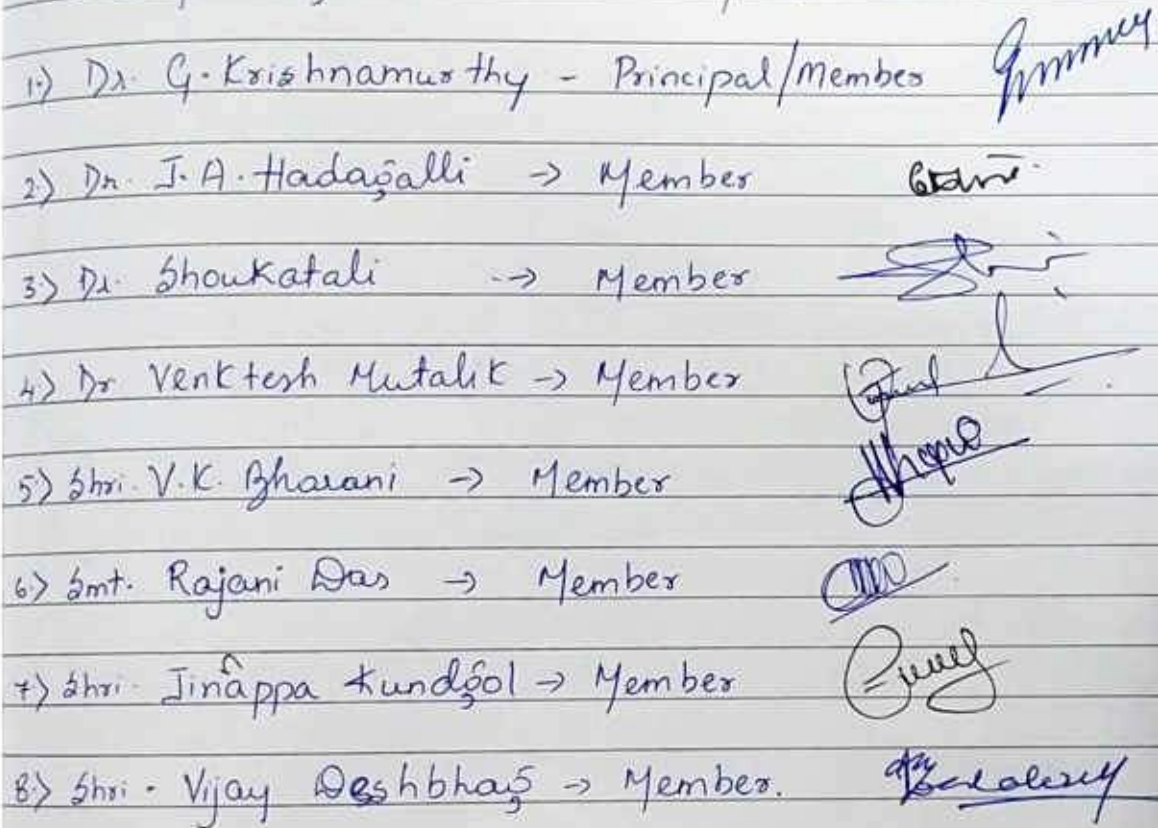 1.) Dr. G. Krishnamurthy - Principal/Member
2) Dr. J. A. Hadagalli -> Member
3) Dr. Shoukatali --> Member
4) Dr Venktesh Mutalik -> Member
5) Shri. V.K. Bharani -> Member
6.) Smt. Rajani Das -> Member
7) Shri. Jinappa Kundgol -> Member
8.) Shri. Vijay Deshbhag -> Member.